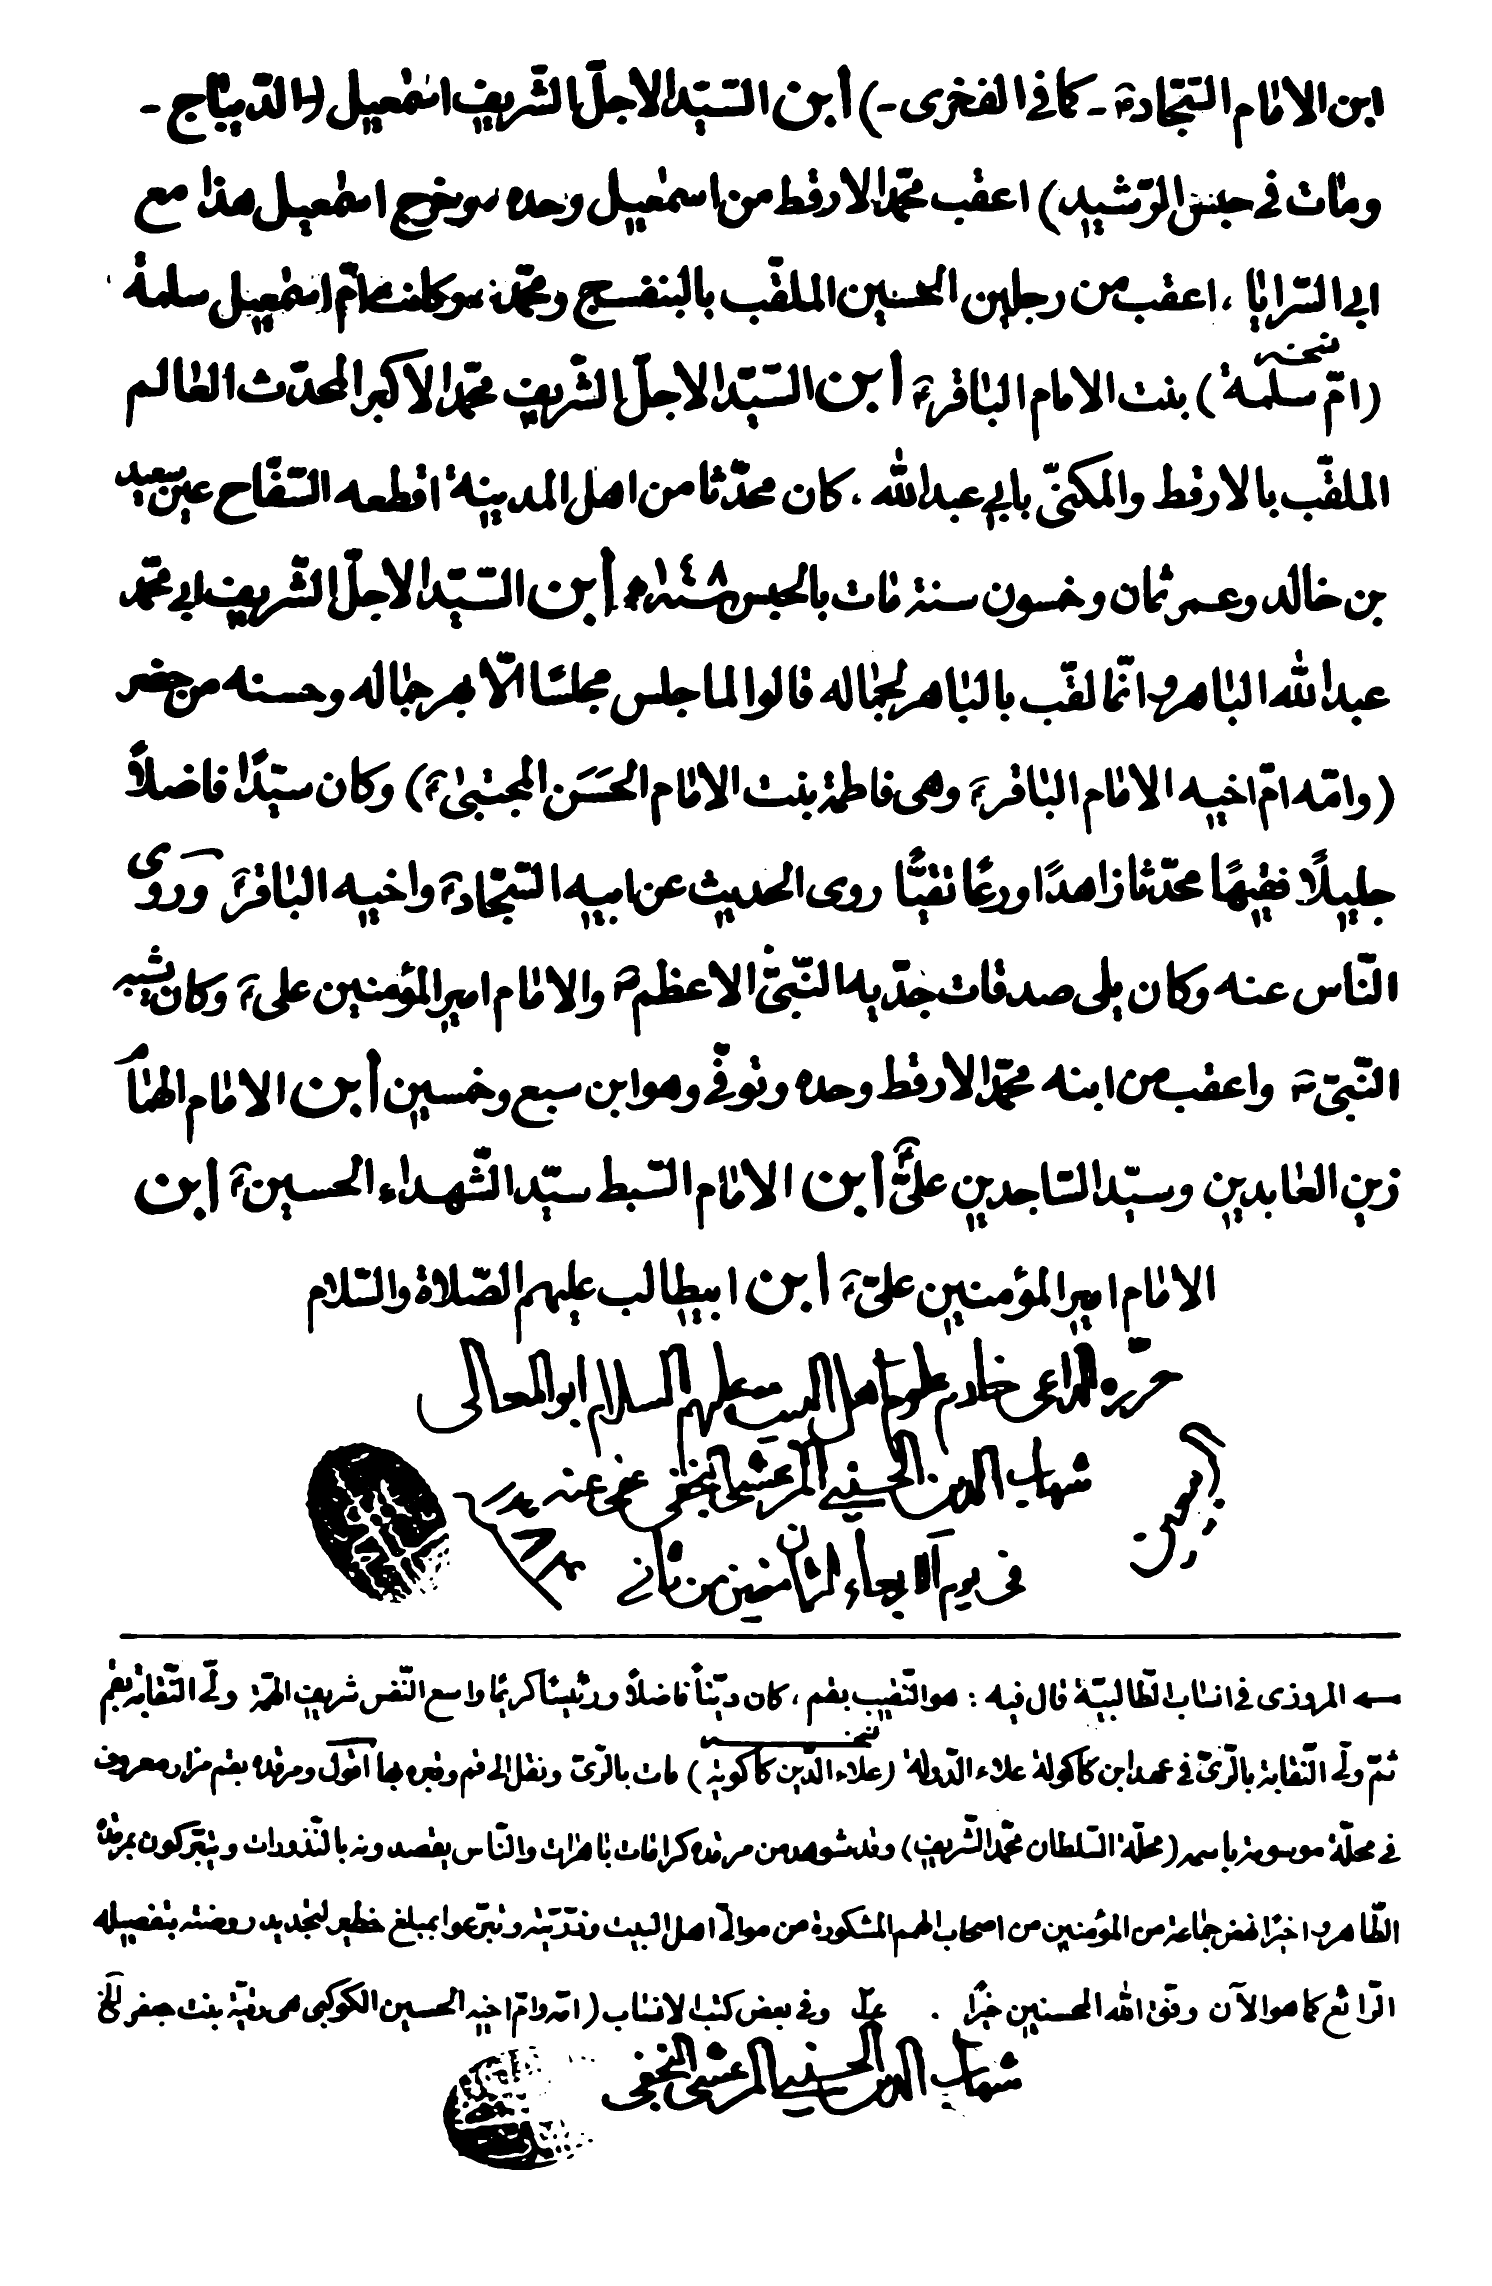 ابن الامام السّجّاد عـ - كما في الفخري -) ابن السّيّد الاجلّ الشّريف اسمعيل (الدّيباج -
ومات في حبس الرّشيد) اعقب محمّد الارقط من اسمعيل وحده وخرج اسمعيل هذا مع
ابي السّرايا ، اعقب من رجلين الحسين الملقّب بالبنفسج ومحمّد، وكانت امّ اسمعيل سلمة
(امّ سلمة نسخه) بنت الامام الباقر عـ ابن السّيّد الاجلّ الشّريف محمّد الاكبر المحدّث العالم
الملقّب بالارقط والمكنّى بابي عبد الله ، كان محدّثا من اهل المدينة اقطعه السّفّاح عين سعيد
بن خالد وعمر ثمان وخمسون سنة مات بالحبس سنة ١٤٨ ابن السّيّد الاجلّ الشّريف ابي محمّد
عبد الله الباهر وانّما لقّب بالباهر لجماله قالوا لما جلس مجلسًا الّا بهر جماله وحسنه من حضر
(وامّه امّ اخيه الامام الباقر عـ وهي فاطمة بنت الامام الحَسَن المجتبى عـ) وكان سيّدًا فاضلاً
جليلًا فقيهًا محدّثا زاهدًا ورعًا نقيًّا روى الحديث عن ابيه السّجّاد عـ واخيه الباقر عـ وروى
النّاس عنه وكان يلي صدقات جدّيه النّبيّ الاعظم ص والامام امير المؤمنين علي عـ وكان يشبه
النّبيّ ص واعقب من ابنه محمّد الارقط وحده وتوفّي وهو ابن سبع وخمسين ابن الامام الهمام
زين العابدين وسيّد السّاجدين عليّ عـ ابن الامام السّبط سيّد الشّهداء الحسين عـ ابن
الامام امير المؤمنين عليّ عـ ابن ابيطالب عليهم الصّلاة والسّلام
حرّره الداعي خادم علوم اهل البيت عليهم السلام ابو المعالي
شهاب الدين الحسيني المرعشي النجفي عفي عنه
آمين
في يوم الاربعاء الثامن من ثاني
← المروزي في انساب الطّالبيّة قال فيه : هو النّقيب بقم ، كان ديّناً فاضلاً ورئيسًا كريمًا واسع النّفس شريف الهمّة ولّي النّقابة بقم
ثمّ ولّي النّقابة بالرّيّ في عهد ابن كاكولة علاء الدّولة (علاء الدّين كاكويه نسخه) مات بالرّيّ ونقل الى قم وقبره بها اقول ومرقده بقم مزار معروف
في محلّة موسومة باسمه (محلّة السّلطان محمّد الشّريف) وقد شوهد من مرقده كرامات باهرات والنّاس يقصدونه بالنّذورات ويتبرّكون بمرقده
الطّاهر واخيرًا نهض جماعة من المؤمنين من اصحاب الهمم المشكورة من موالي اهل البيت وذرّيّته وتبرّعوا بمبلغ خطير لتجديد روضته بتفصيله
الرّائع كما هو الآن وفّق الله المحسنين خيرًا . علّ وفي بعض كتب الانساب (امّه وامّ اخيه الحسين الكوكبي هي رقيّة بنت جعفر الخ
شهاب الدين الحسيني المرعشي النجفي